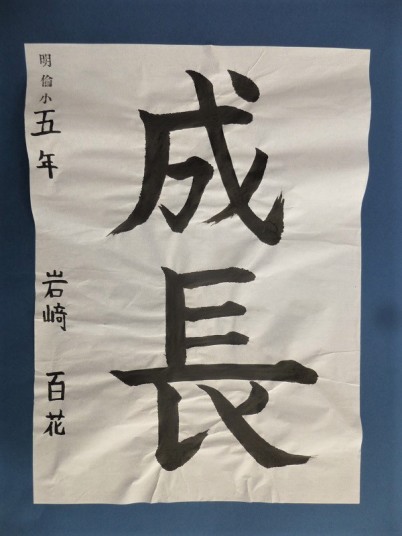 成長
明倫小
五年
岩﨑 百花